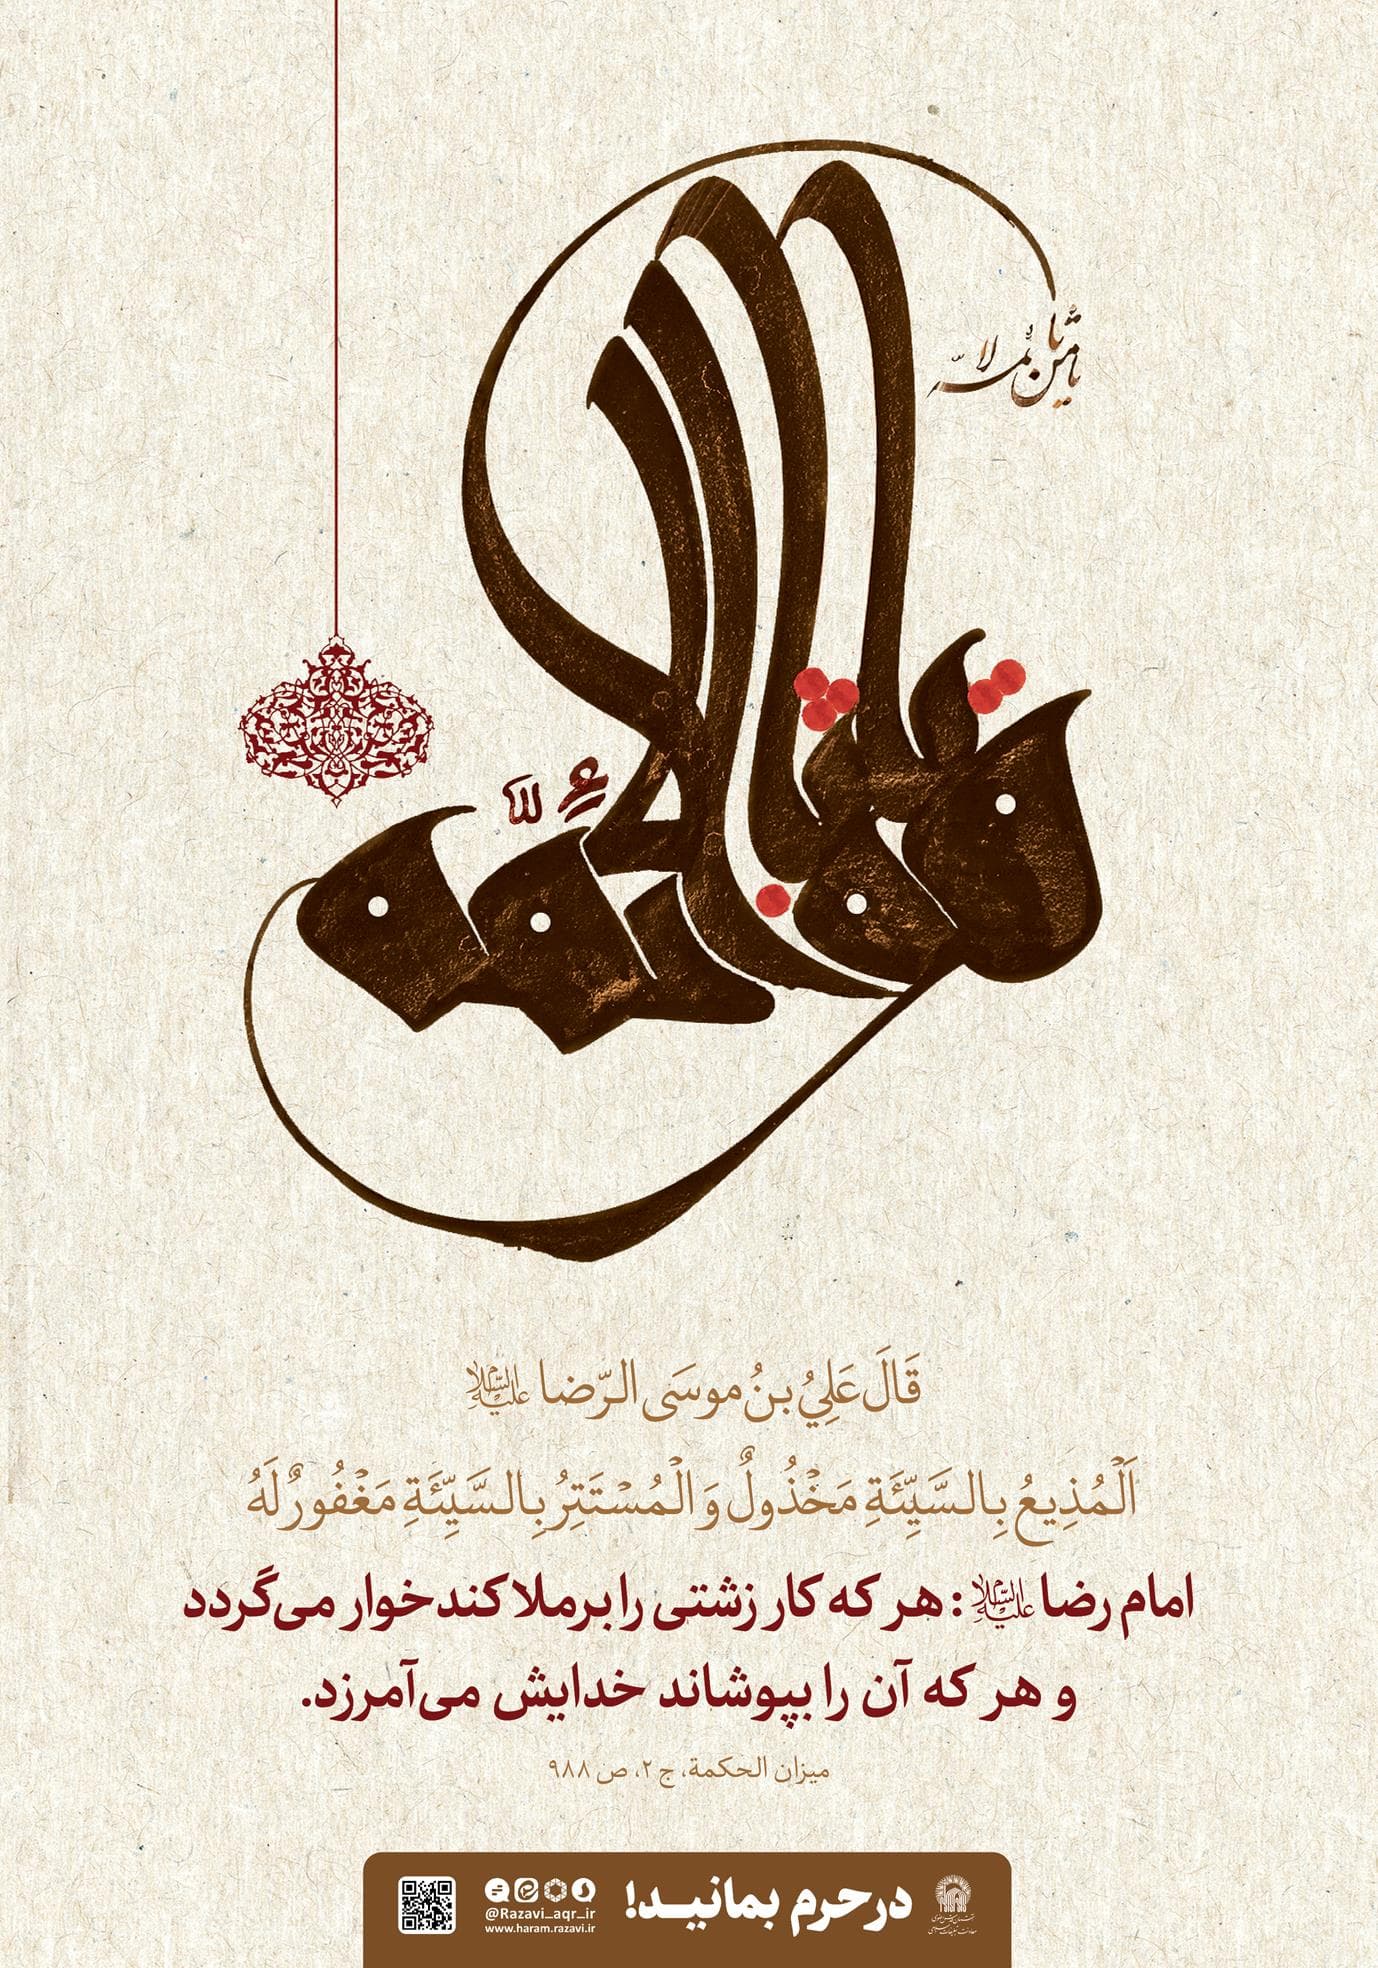 قَالَ عَلِيُ بنُ موسَی الرّضا علیه السلام
اَلْمُذِیعُ بِالسَّیِّئَةِ مَخْذُولٌ وَ الْمُسْتَتِرُ بِالسَّیِّئَةِ مَغْفُورٌ لَهُ
امام رضا علیه السلام: هر که کار زشتی را برملا کند خوار می‌گردد
و هر که آن را بپوشاند خدایش می‌آمرزد.
میزان الحکمة، ج ۲، ص ۹۸۸
در حرم بمانید!
@Razavi_aqr_ir
www.haram.razavi.ir